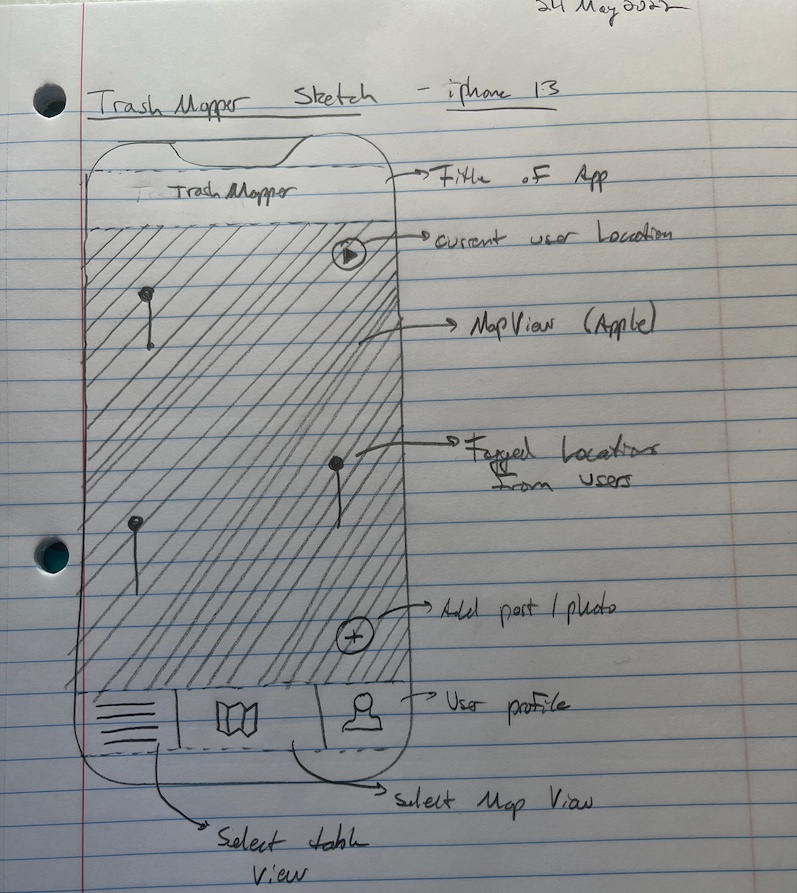 24 May 2022
Trash Mapper Sketch - iphone 13
Trash Mapper
Title of App
current user Location
MapView (Apple)
Tagged Locations
from users
Add post / photo
User profile
Select Map View
Select table
View